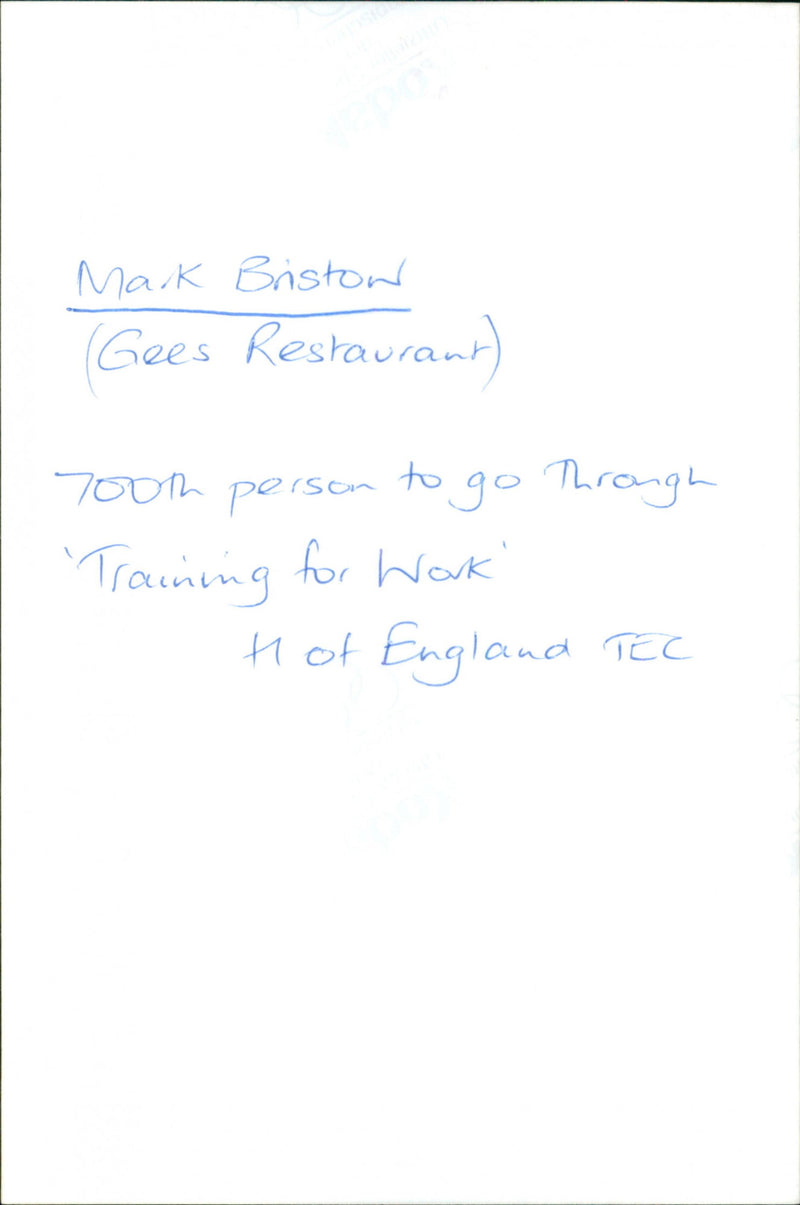 Mark Bristow
(Gees Restaurant)
700th person to go Through
'Training for Work'
H of England TEC